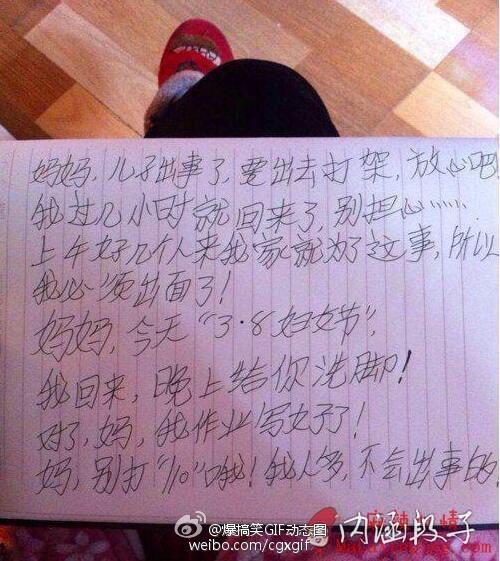 妈妈，儿子出事了，要出去打架，放心吧
我过几小时就回来了，别担心……
上午好几个人来我家就为了这事，所以
我必须出面了！
妈妈，今天“3·8妇女节”，
我回来，晚上给你洗脚！
对了，妈，我作业写好了！
妈，别打“110”哦！我人多，不会出事的！
@爆搞笑GIF动态图
weibo.com/cgxgif
内涵段子